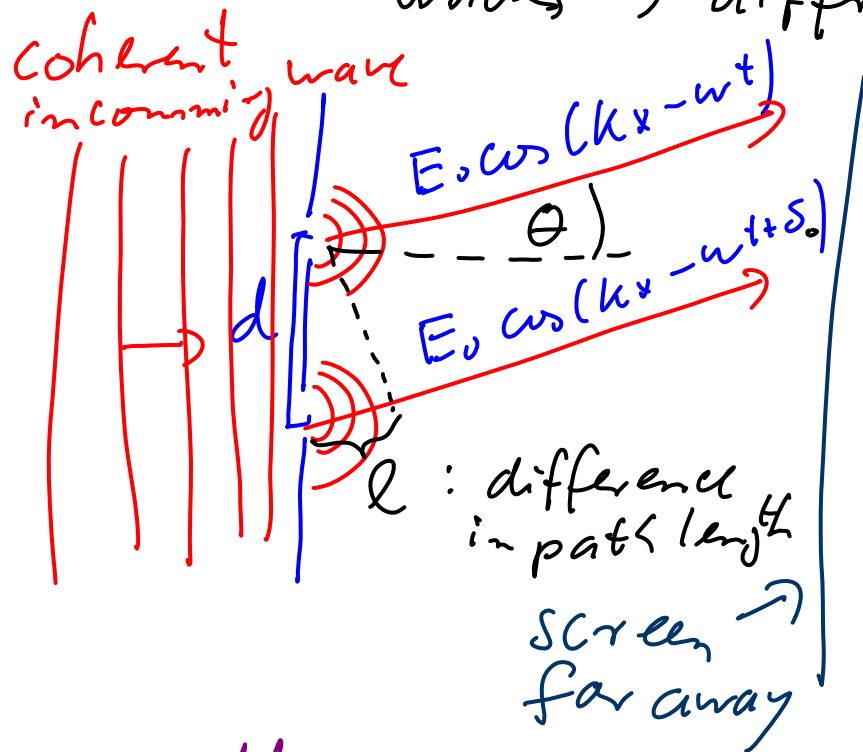 diff
coherent wave
incomming
E₀ cos(kx-wt)
θ
d
E₀ cos(kx-wt+δ₀)
l : difference
in path length
screen
far away